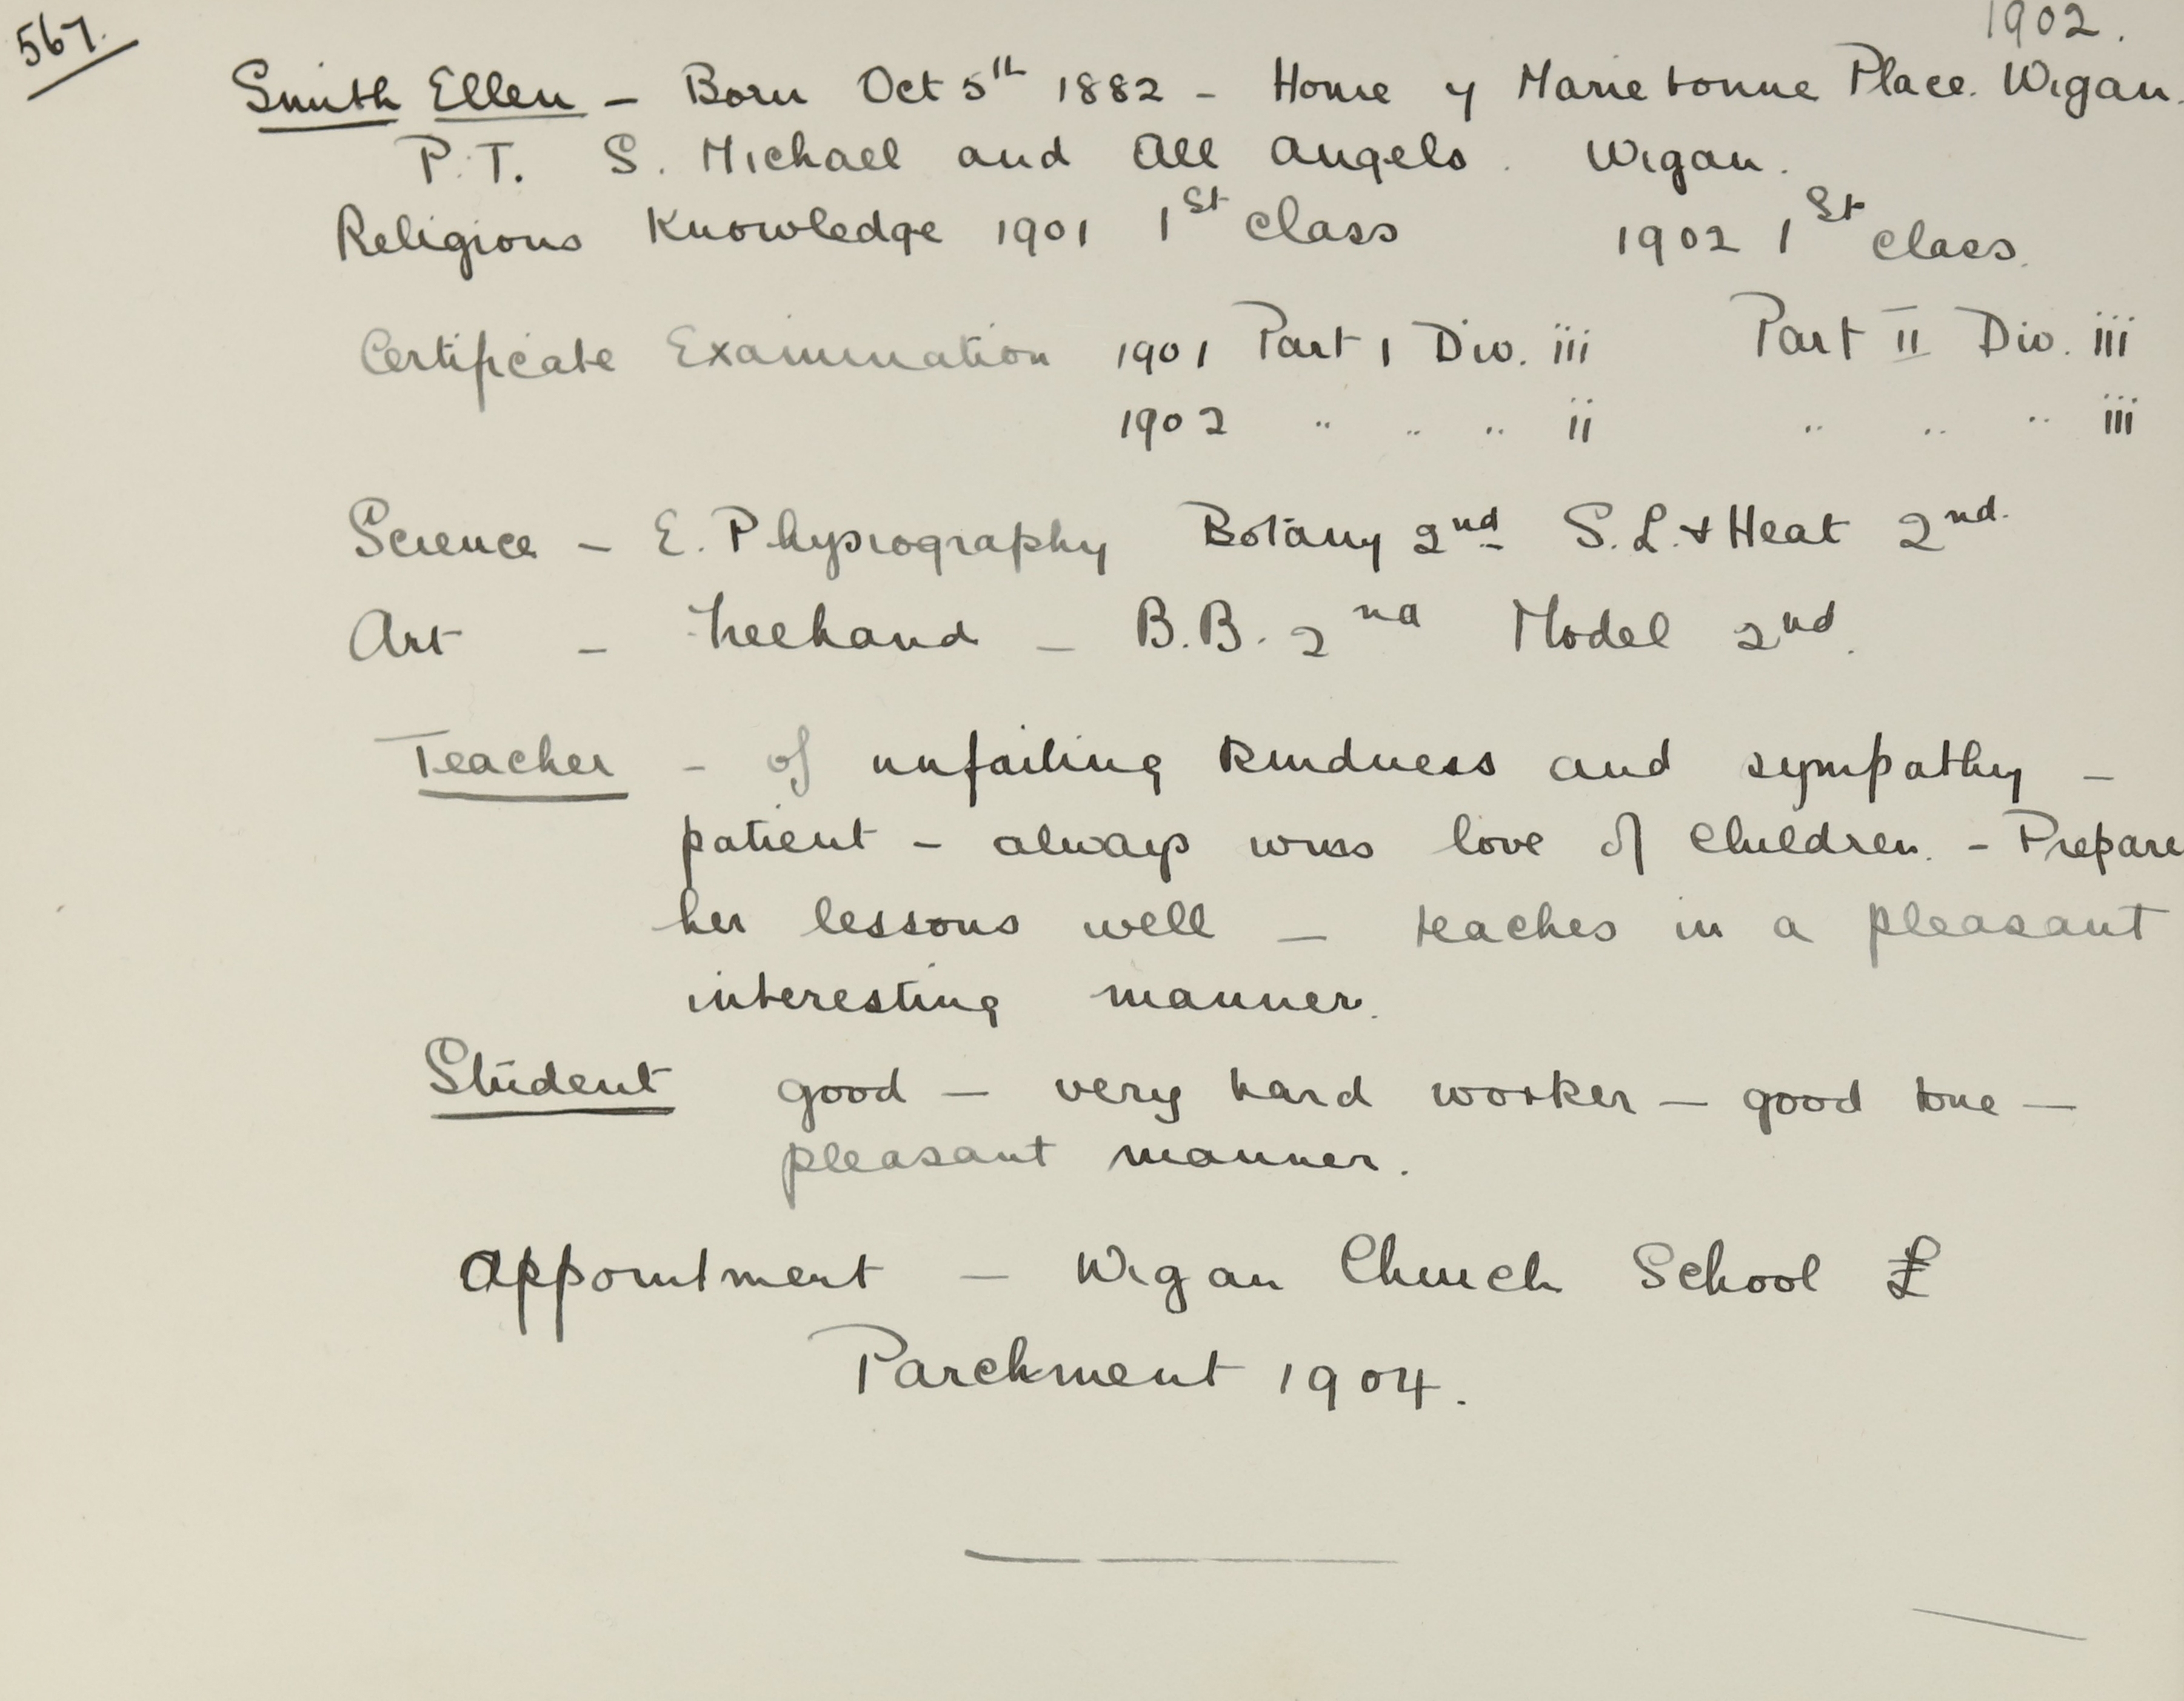 1902.
567.
Smith Ellen – Born Oct 5th 1882 – Home 4 Marie bonne Place. Wigan.
P.T. S. Michael and All Angels. Wigan.
Religious Knowledge 1901 1st class 1902 1st class.
Certificate Examination 1901 Part 1 Div. iii Part II Div. iii
1902 " " " ii " " " iii
Science – E. Physiography Botany 2nd S.L. & Heat 2nd.
Art – Freehand – B.B. 2nd Model 2nd.
Teacher – of unfailing kindness and sympathy –
patient – always wins love of children. – Prepare
her lessons well – teaches in a pleasant
interesting manner.
Student good – very hard worker – good tone –
pleasant manner.
Appointment – Wigan Church School £
Parchment 1904.